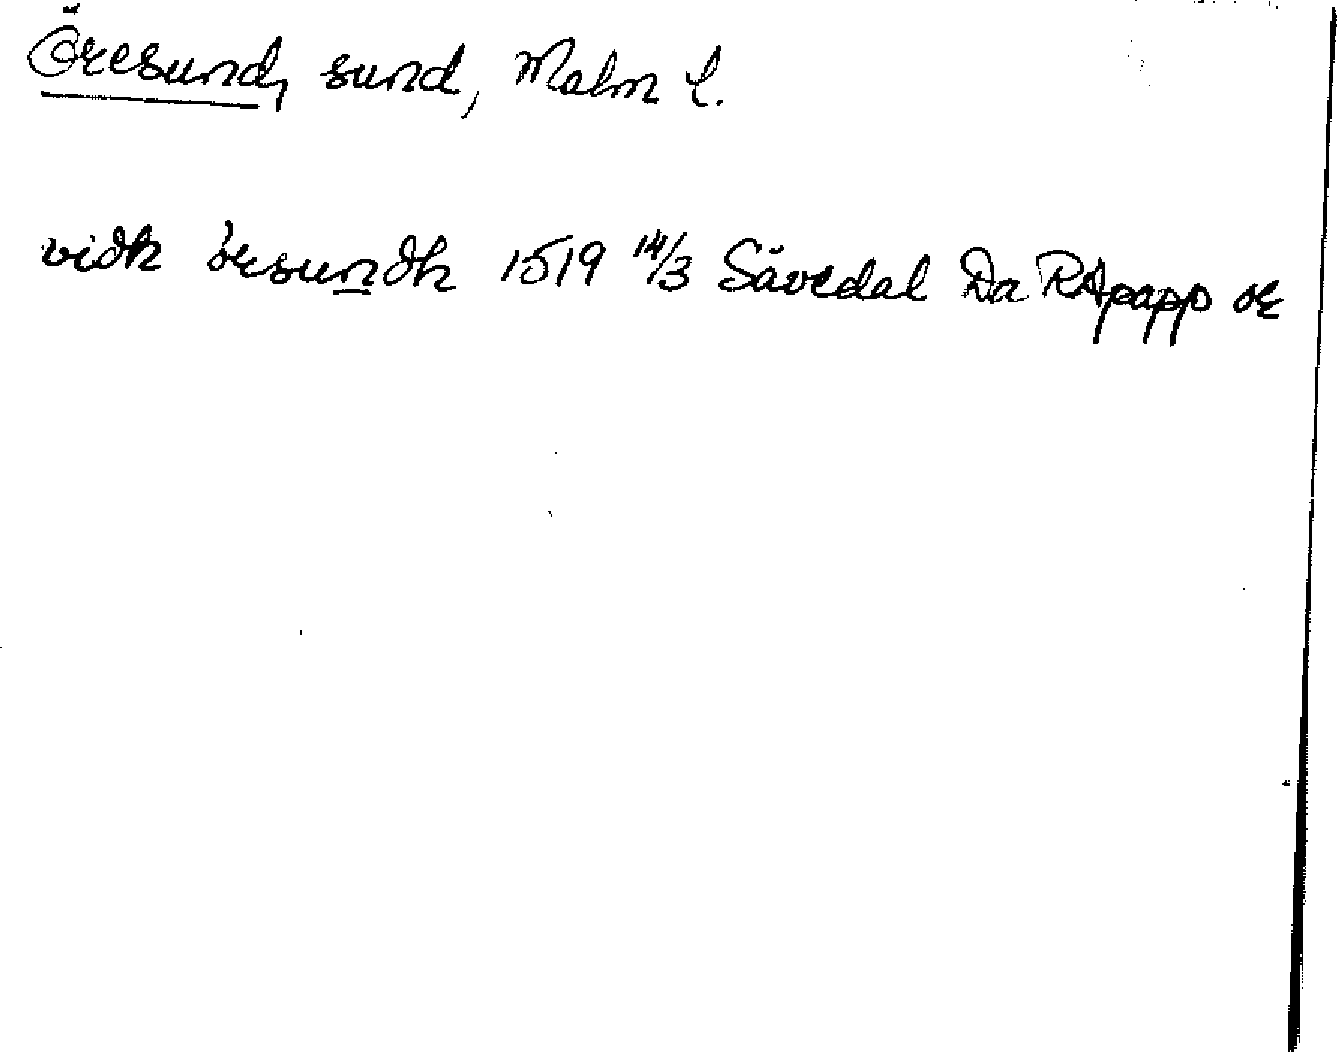 Öresund, sund, Malm L.
vidh öresundh 1519 14/3 Sävedal Da RApapp or